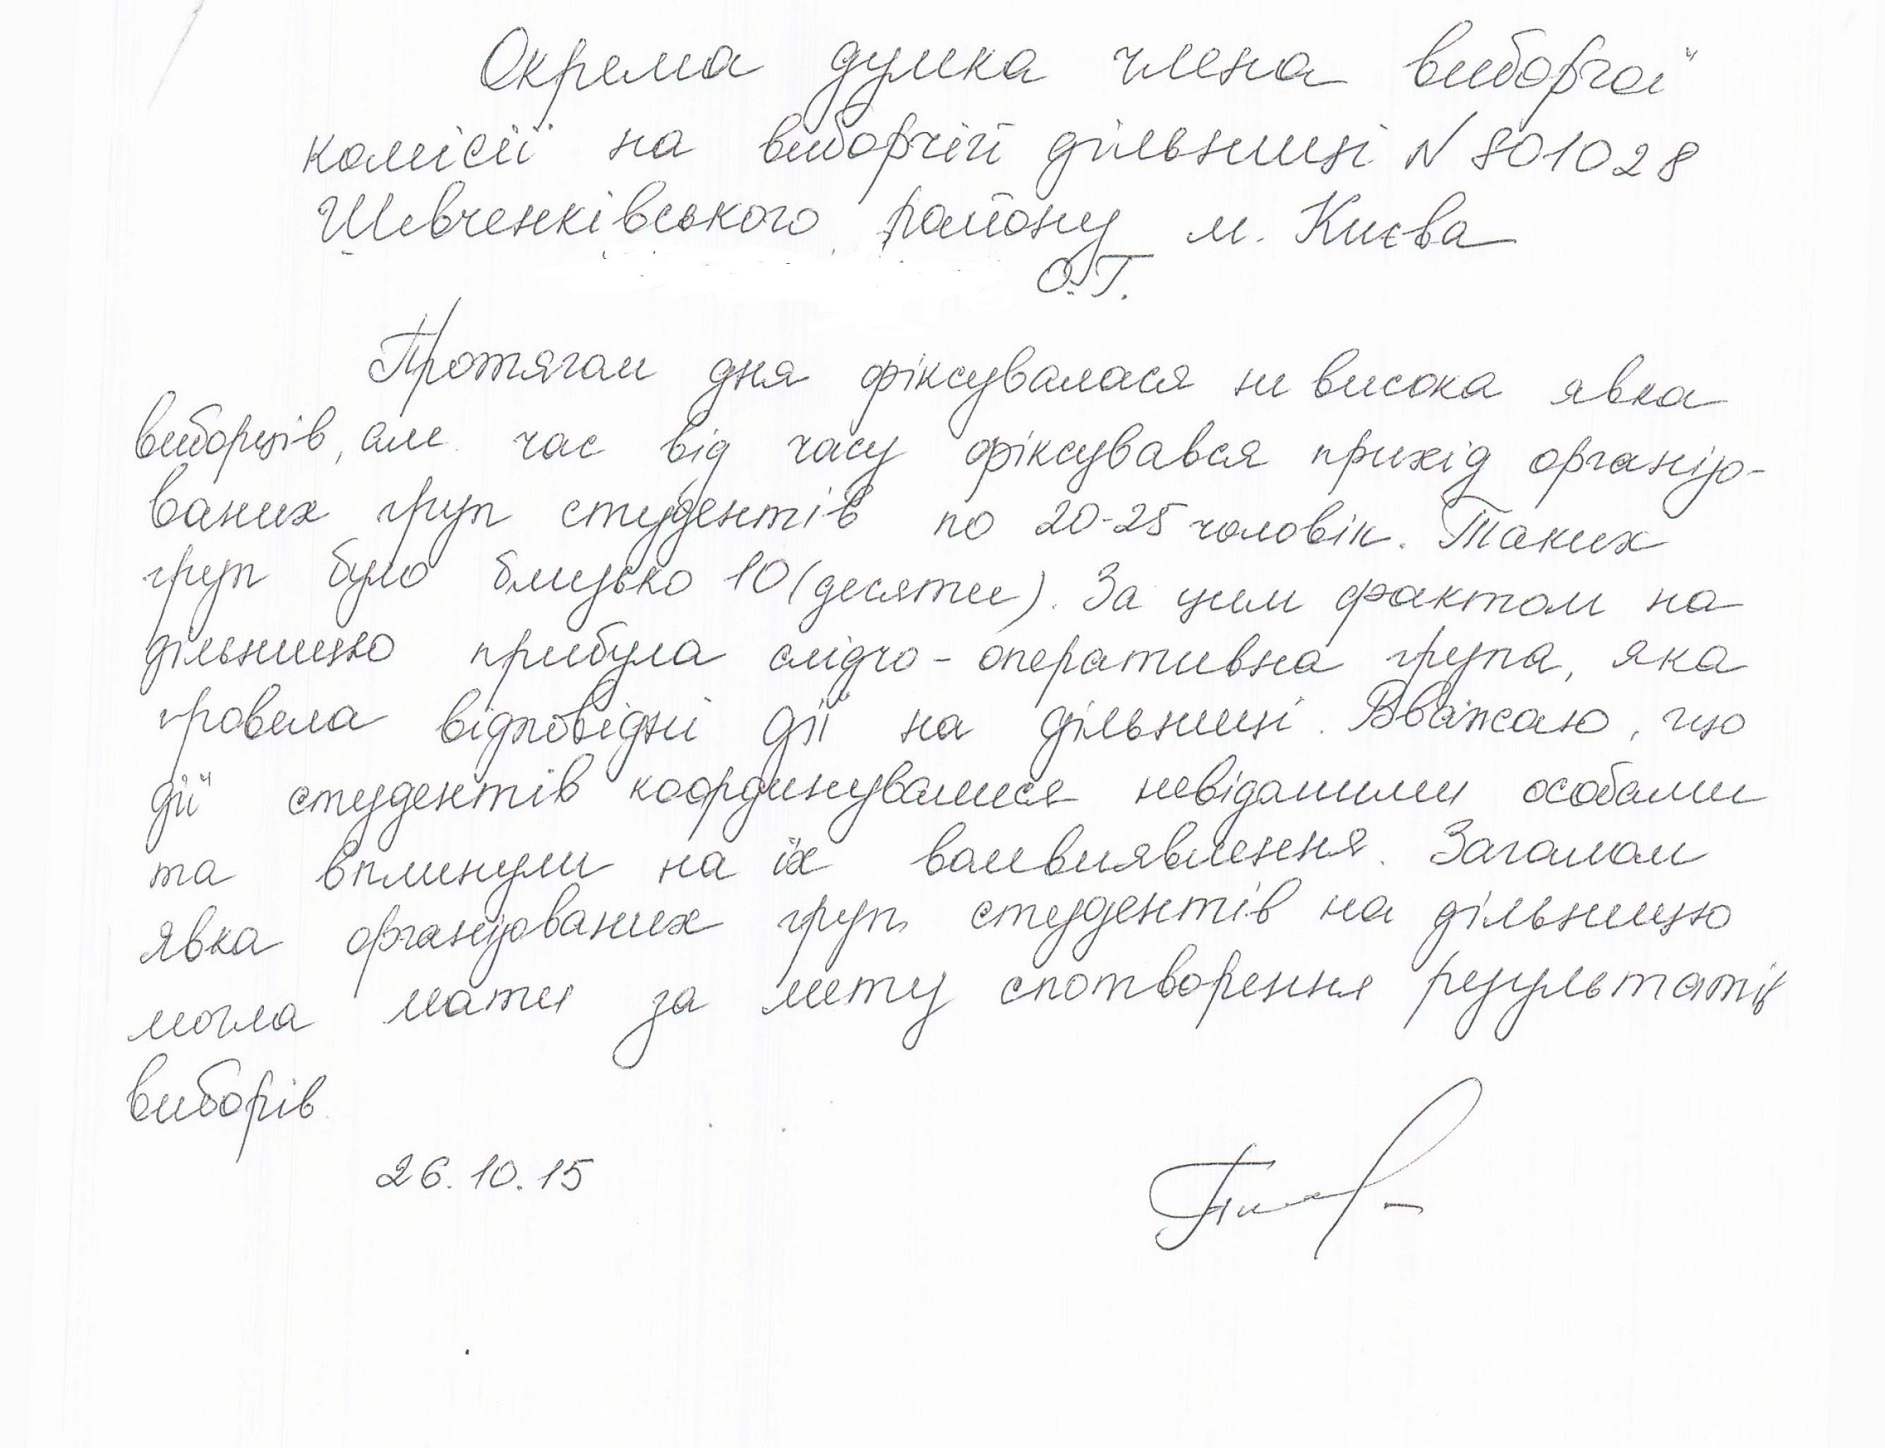 Окрема думка члена виборчої
комісії на виборчій дільниці N 801028
Шевченківського району м. Києва
О.Г.
Протягом дня фіксувалася не висока явка
виборців, але час від часу фіксувався прихід організо-
ваних груп студентів по 20-25 чоловік. Таких
груп було близько 10 (десяти). За цим фактом на
дільницю прибула слідчо-оперативна група, яка
провела відповідні дії на дільниці. Вважаю, що
дії студентів координувалися невідомими особами
та вплинули на їх волевиявлення. Загалом
явка організованих груп студентів на дільницю
могла мати за мету спотворення результатів
виборів.
26.10.15